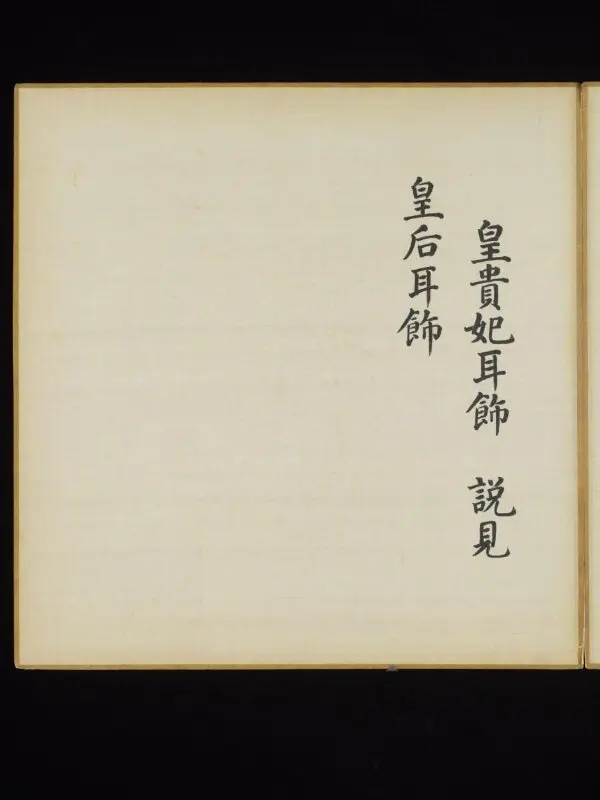 皇貴妃耳飾　說見
皇后耳飾